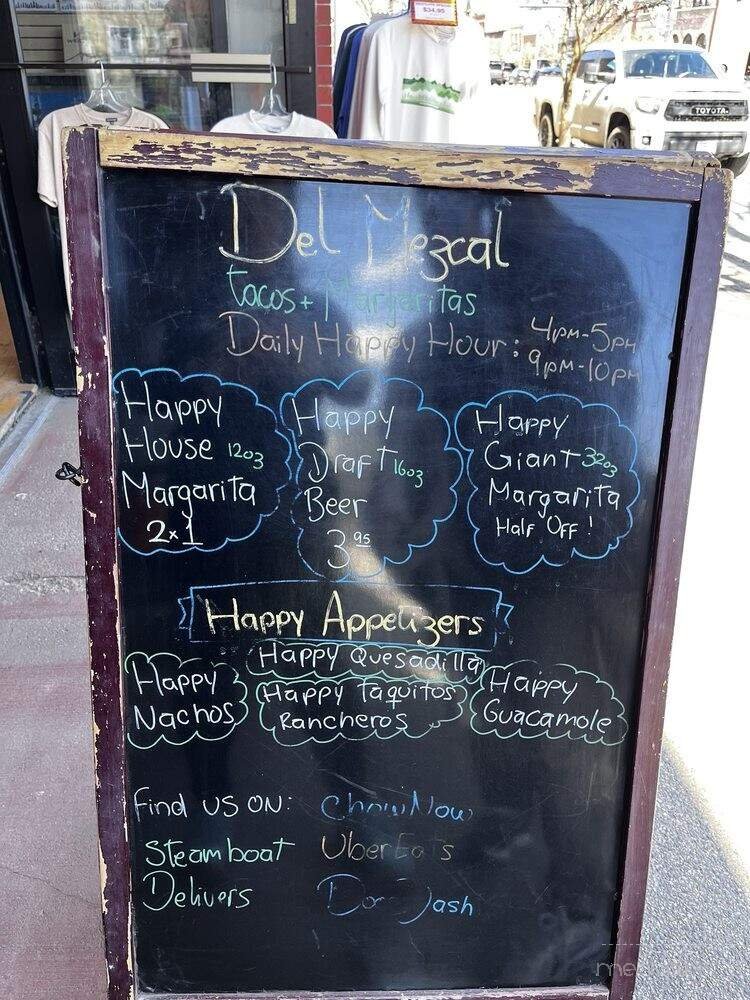 $34.95
TOYOTA
Del Mezcal
tacos + Margaritas
Daily Happy Hour: 4pm-5pm
9pm-10pm
Happy
House 12oz
Margarita
2x1
Happy
Draft 16oz
Beer
3 95
Happy
Giant 32oz
Margarita
Half Off!
Happy Appetizers
Happy
Nachos
Happy Quesadilla
Happy Taquitos
Rancheros
Happy
Guacamole
find us on: ChowNow
Steamboat
Delivers
UberEats
DoorDash